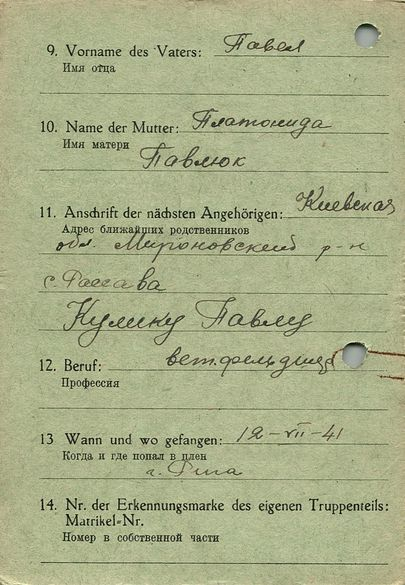 9. Vorname des Vaters: Павел
Имя отца
10. Name der Mutter: Платонида
Имя матери
Павлюк
11. Anschrift der nächsten Angehörigen: Киевская
Адрес ближайших родственников
обл. Мироновский р-н
с. Россава
Кулику Павлу
12. Beruf: ветфельдшер
Профессия
13 Wann und wo gefangen: 12-VII-41
Когда и где попал в плен
г. Рига
14. Nr. der Erkennungsmarke des eigenen Truppenteils:
Matrikel-Nr.
Номер в собственной части